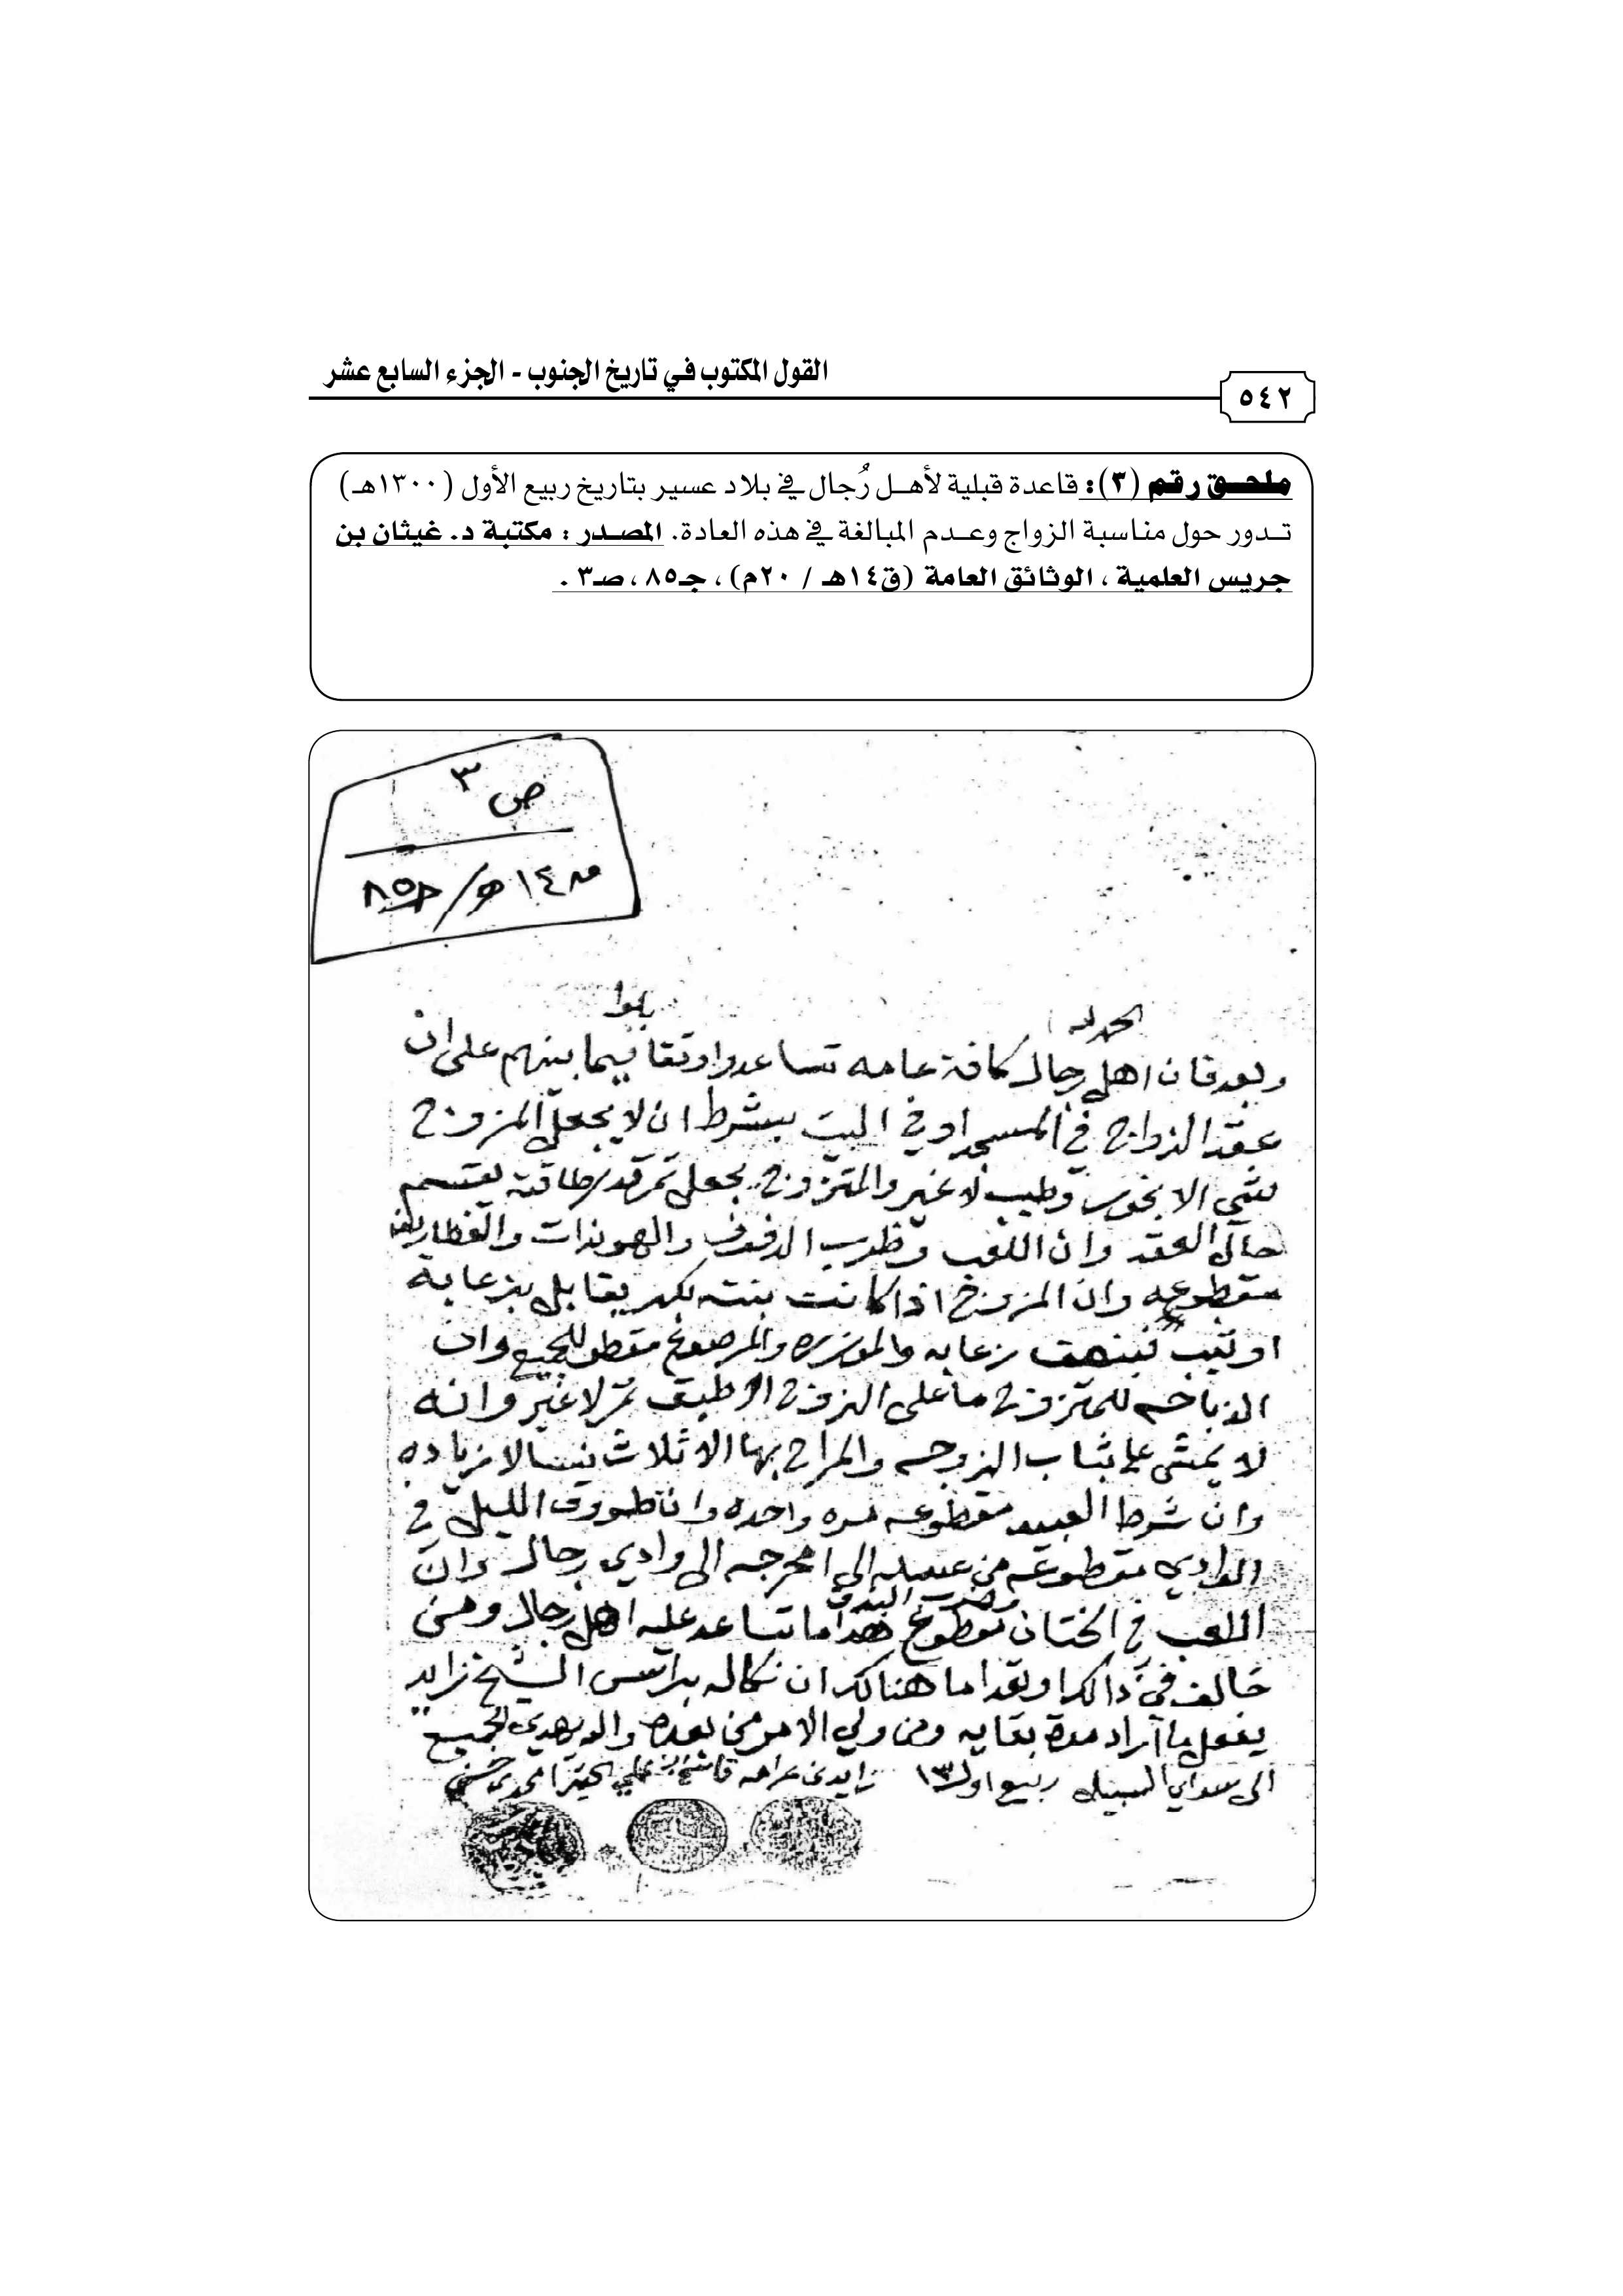 القول المكتوب في تاريخ الجنوب - الجزء السابع عشر
٥٤٢
ملحـق رقم (٣): قاعدة قبلية لأهـل رُجال في بلاد عسير بتاريخ ربيع الأول (١٣٠٠هـ)
تـدور حول مناسبة الزواج وعـدم المبالغة في هذه العادة. المصـدر : مكتبة د. غيثان بن
جريس العلمية ، الوثائق العامة (ق١٤هـ / ٢٠م) ، جـ٨٥ ، صـ٣ .
ص ٣
ق ١٤ هـ / جـ ٨٥
الحمد لله
وبعد فان اهل رجال كافة عامه تساعدوا وتقا فيما بينهم على ان
عقد الزواج في المسجد او في البيت بشرط ان لا يجعل المزوج
شي الا بخور وطيب لا غير والمتزوج يجعل تمر قدر طاقته يقسم
حال العقد وان اللعب وظرب الدفوف والهوندات والغطاريف
مقطوعه وان المزوج اذا كانت بنته بكر يقابل بزعابة
او ثيب زعابه والمرصوع مقطوع للجميع وان
الذباحه للمتزوج ما على الزوج الا طبق تمر لا غير وانه
لا يمشي على ثياب الزوجه والمراح بها الا ثلاث نسا لا زياده
وان شرط العبيد مقطوعه مره واحده وان طووف الليل في
الوادي مقطوعه من الى وادي رجال وان
اللعب في الختان وضرب البندق مقطوع هذا ما تساعد عليه اهل رجال ومن
خالف في ذالك او تعدا ما هنالك ان نكاله الشيخ زايد
يفعل ما اراد مدة بقايه ومن ولي الامر من بعده والله يهدي الجميع
الى السبيل ربيع اول ١٣